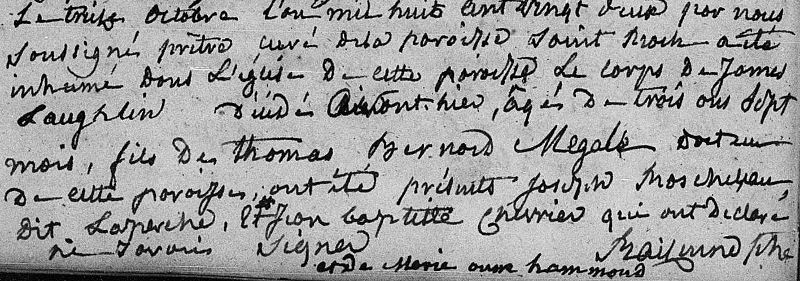 Le treize octobre l'an mil huit cent vingt deux par nous
soussigné prêtre curé de la paroisse Saint Roch a été
inhumé dans L'église de cette paroisse Le corps de James
Laughlin décédé avant hier, âgé de trois ans sept
mois, fils de thomas Bernard Megale docteur
de cette paroisse, ont été présents Joseph
dit Laperche, Et Jean baptiste Chevrier qui ont déclaré
ne savoir signer
et de Marie anne hammond